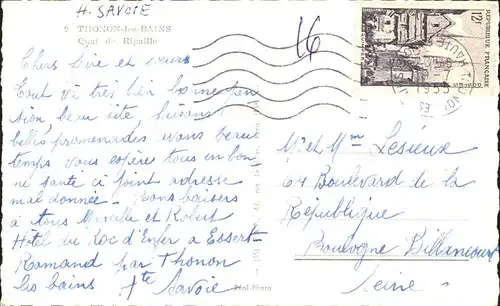 H. SAVOIE
2 THONON-les-BAINS
Quai de Ripaille
16
Chers Père et sœurs
Tout va très bien bonne pen
sion beau site, faisons
belles promenades avons beau
temps vous espérons tous en bon-
ne santé ci joint adresse
mal donnée - bons baisers
à tous Mireille et Robert
Hôtel du Roc d'Enfer à Essert-
Romand par Thonon
les bains Hte Savoie
12F
REPUBLIQUE FRANÇAISE
Mr et Mme Lesieux
64 Boulevard de la
République
Boulogne Billancourt
Seine
Réal-Photo